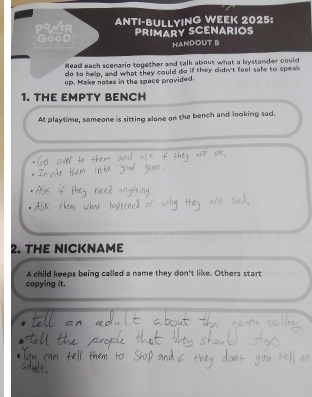 POWER
GOOD
ANTI-BULLYING WEEK 2025:
PRIMARY SCENARIOS
HANDOUT B
Read each scenario together and talk about what a bystander could
do to help, and what they could do if they didn't feel safe to speak
up. Make notes in the space provided.
1. THE EMPTY BENCH
At playtime, someone is sitting alone on the bench and looking sad.
• Go over to them and ask if they are ok.
• Invite them into your game.
• Ask if they need anything.
• ASK them what happened or why they are sad.
2. THE NICKNAME
A child keeps being called a name they don't like. Others start
copying it.
• tell an adult about the name calling
• tell the people that they should stop
• You can tell them to stop and if they dont you tell an
adult.